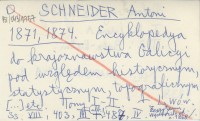 Q SCHNEIDER Antoni
1871, 1874. Encyklopedya
do krajoznawstwa Galicyi
pod względem historycznym,
statystycznym, topograficznym
[...] etc. Tom I, II. Lwów.
Ss. XIII, 403, III 487, IV